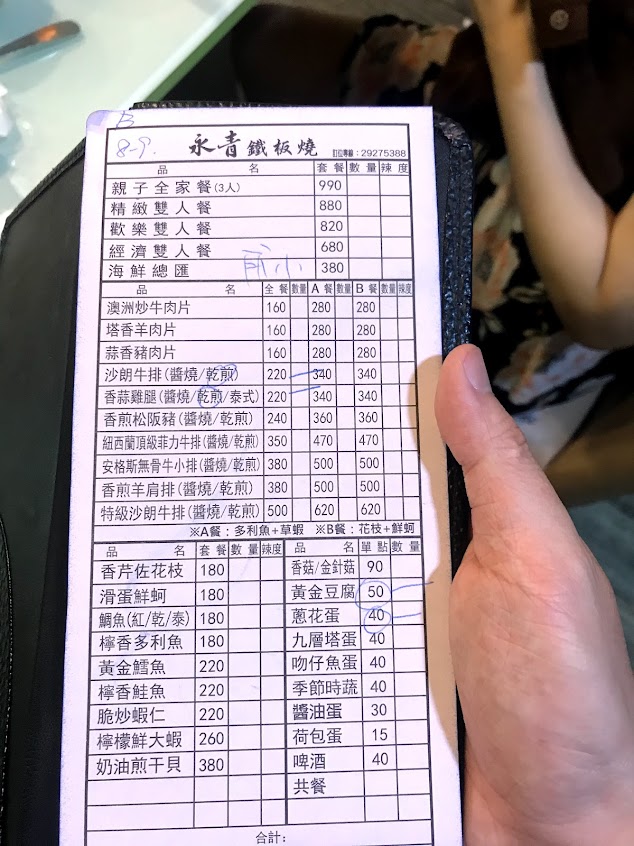 B
8-9.
永青 鐵板燒 訂位專線：29275388
品 名 套餐 數量 辣度
親子全家餐(3人) 990
精緻雙人餐 880
歡樂雙人餐 820
經濟雙人餐 680
海鮮總匯 380
品 名 全餐 數量 A餐 數量 B餐 數量 辣度
澳洲炒牛肉片 160 280 280
塔香羊肉片 160 280 280
蒜香豬肉片 160 280 280
沙朗牛排(醬燒/乾煎) 220 340 340
香蒜雞腿(醬燒/乾煎/泰式) 220 340 340
香煎松阪豬(醬燒/乾煎) 240 360 360
紐西蘭頂級菲力牛排(醬燒/乾煎) 350 470 470
安格斯無骨牛小排(醬燒/乾煎) 380 500 500
香煎羊肩排(醬燒/乾煎) 380 500 500
特級沙朗牛排(醬燒/乾煎) 500 620 620
※A餐：多利魚+草蝦 ※B餐：花枝+鮮蚵
品 名 套餐 數量 辣度 品 名 單點 數量
香芹佐花枝 180 香菇/金針菇 90
滑蛋鮮蚵 180 黃金豆腐 50
鯛魚(紅/乾/泰) 180 蔥花蛋 40
檸香多利魚 180 九層塔蛋 40
黃金鱈魚 220 吻仔魚蛋 40
檸香鮭魚 220 季節時蔬 40
脆炒蝦仁 220 醬油蛋 30
檸檬鮮大蝦 260 荷包蛋 15
奶油煎干貝 380 啤酒 40
共餐
合計：